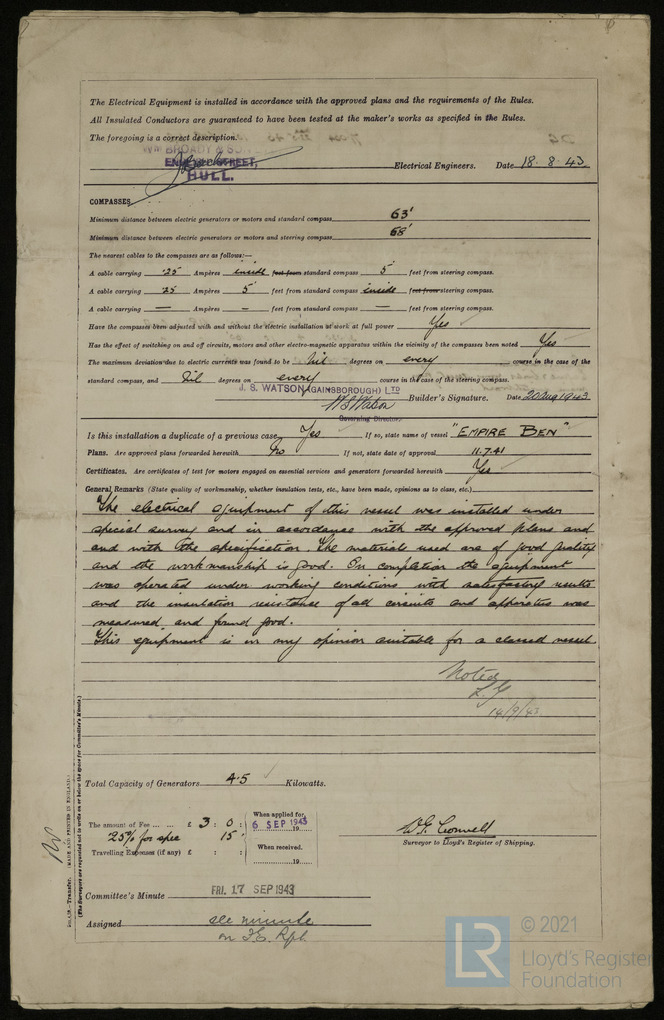 The Electrical Equipment is installed in accordance with the approved plans and the requirements of the Rules.
All Insulated Conductors are guaranteed to have been tested at the maker's works as specified in the Rules.
The foregoing is a correct description.
STREET,
HULL.
Electrical Engineers. Date 18.8.43
COMPASSES.
Minimum distance between electric generators or motors and standard compass 63'
Minimum distance between electric generators or motors and steering compass 68'
The nearest cables to the compasses are as follows:—
A cable carrying .25 Ampères inside feet from standard compass 5' feet from steering compass.
A cable carrying .25 Ampères 5' feet from standard compass inside feet from steering compass.
A cable carrying — Ampères — feet from standard compass — feet from steering compass.
Have the compasses been adjusted with and without the electric installation at work at full power Yes
Has the effect of switching on and off circuits, motors and other electro-magnetic apparatus within the vicinity of the compasses been noted Yes
The maximum deviation due to electric currents was found to be Nil degrees on every course in the case of the
standard compass, and Nil degrees on every course in the case of the steering compass.
J. S. WATSON (GAINSBOROUGH) LTD
W S Watson Builder's Signature. Date 20 Aug 1943
Governing Director
Is this installation a duplicate of a previous case Yes If so, state name of vessel "EMPIRE BEN"
Plans. Are approved plans forwarded herewith No If not, state date of approval 11.7.41
Certificates. Are certificates of test for motors engaged on essential services and generators forwarded herewith Yes
General Remarks (State quality of workmanship, whether insulation tests, etc., have been made, opinions as to class, etc.)
The electrical equipment of this vessel was installed under
special survey and in accordance with the approved plans and
and with the specification. The materials used are of good quality
and the workmanship is good. On completion the equipment
was operated under working conditions with satisfactory results
and the insulation resistance of all circuits and apparatus was
measured and found good.
This equipment is in my opinion suitable for a classed vessel
Noted
14/9/43
Total Capacity of Generators 4.5 Kilowatts.
The amount of Fee ... ... £ 3 : 0 :
25% for spec 15 :
Travelling Expenses (if any) £ : :
When applied for,
6 SEP 1943
19
When received,
19
W.G. Cromwell
Surveyor to Lloyd's Register of Shipping.
Committee's Minute FRI. 17 SEP 1943
Assigned see minute
on F.E. Rpt.
Transfer. (MADE AND PRINTED IN ENGLAND.)
(The Surveyors are requested not to write on or below the space for Committee's Minute.)
LR
© 2021
Lloyd's Register
Foundation